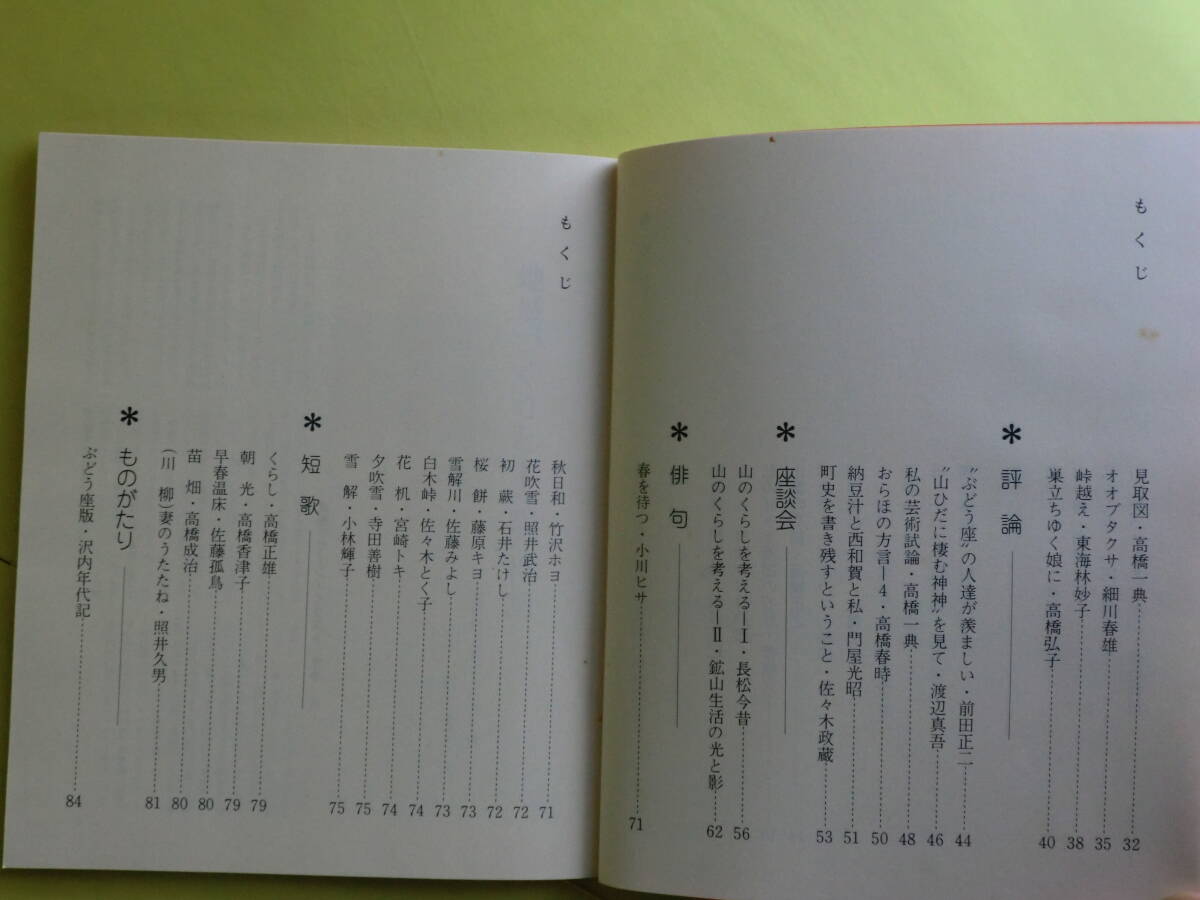 もくじ
見取図・高橋一典 32
オオブタクサ・細川春雄 35
峠越え・東海林妙子 38
巣立ちゆく娘に・高橋弘子 40
＊ 評論
〝ぶどう座〟の人達が羨ましい・前田正二 44
〝山ひだに棲む神神〟を見て・渡辺真吾 46
私の芸術試論・高橋一典 48
おらほの方言―4・高橋春時 50
納豆汁と西和賀と私・門屋光昭 51
町史を書き残すということ・佐々木政蔵 53
＊ 座談会
山のくらしを考える―Ⅰ・長松今昔 56
山のくらしを考える―Ⅱ・鉱山生活の光と影 62
＊ 俳句
春を待つ・小川ヒサ 71
もくじ
秋日和・竹沢ホヨ 71
花吹雪・照井武治 72
初蕨・石井たけし 72
桜餅・藤原キヨ 73
雪解川・佐藤みよし 73
白木峠・佐々木とく子 74
花机・宮崎トキ 74
夕吹雪・寺田善樹 75
雪解・小林輝子 75
＊ 短歌
くらし・高橋正雄 79
朝光・高橋香津子 79
早春温床・佐藤孤鳥 80
苗畑・高橋成治 80
(川柳)妻のうたたね・照井久男 81
＊ ものがたり
ぶどう座版・沢内年代記 84